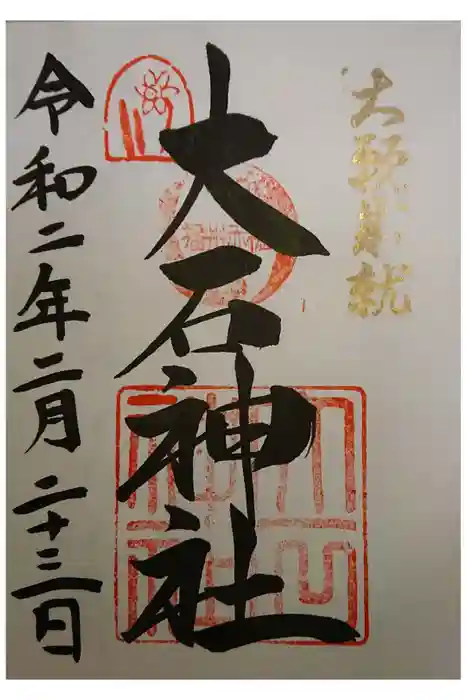 大願成就
大石神社
令和二年二月二十三日